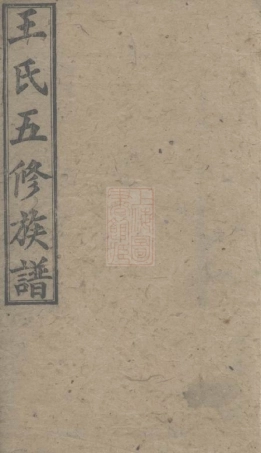 王氏五修族譜